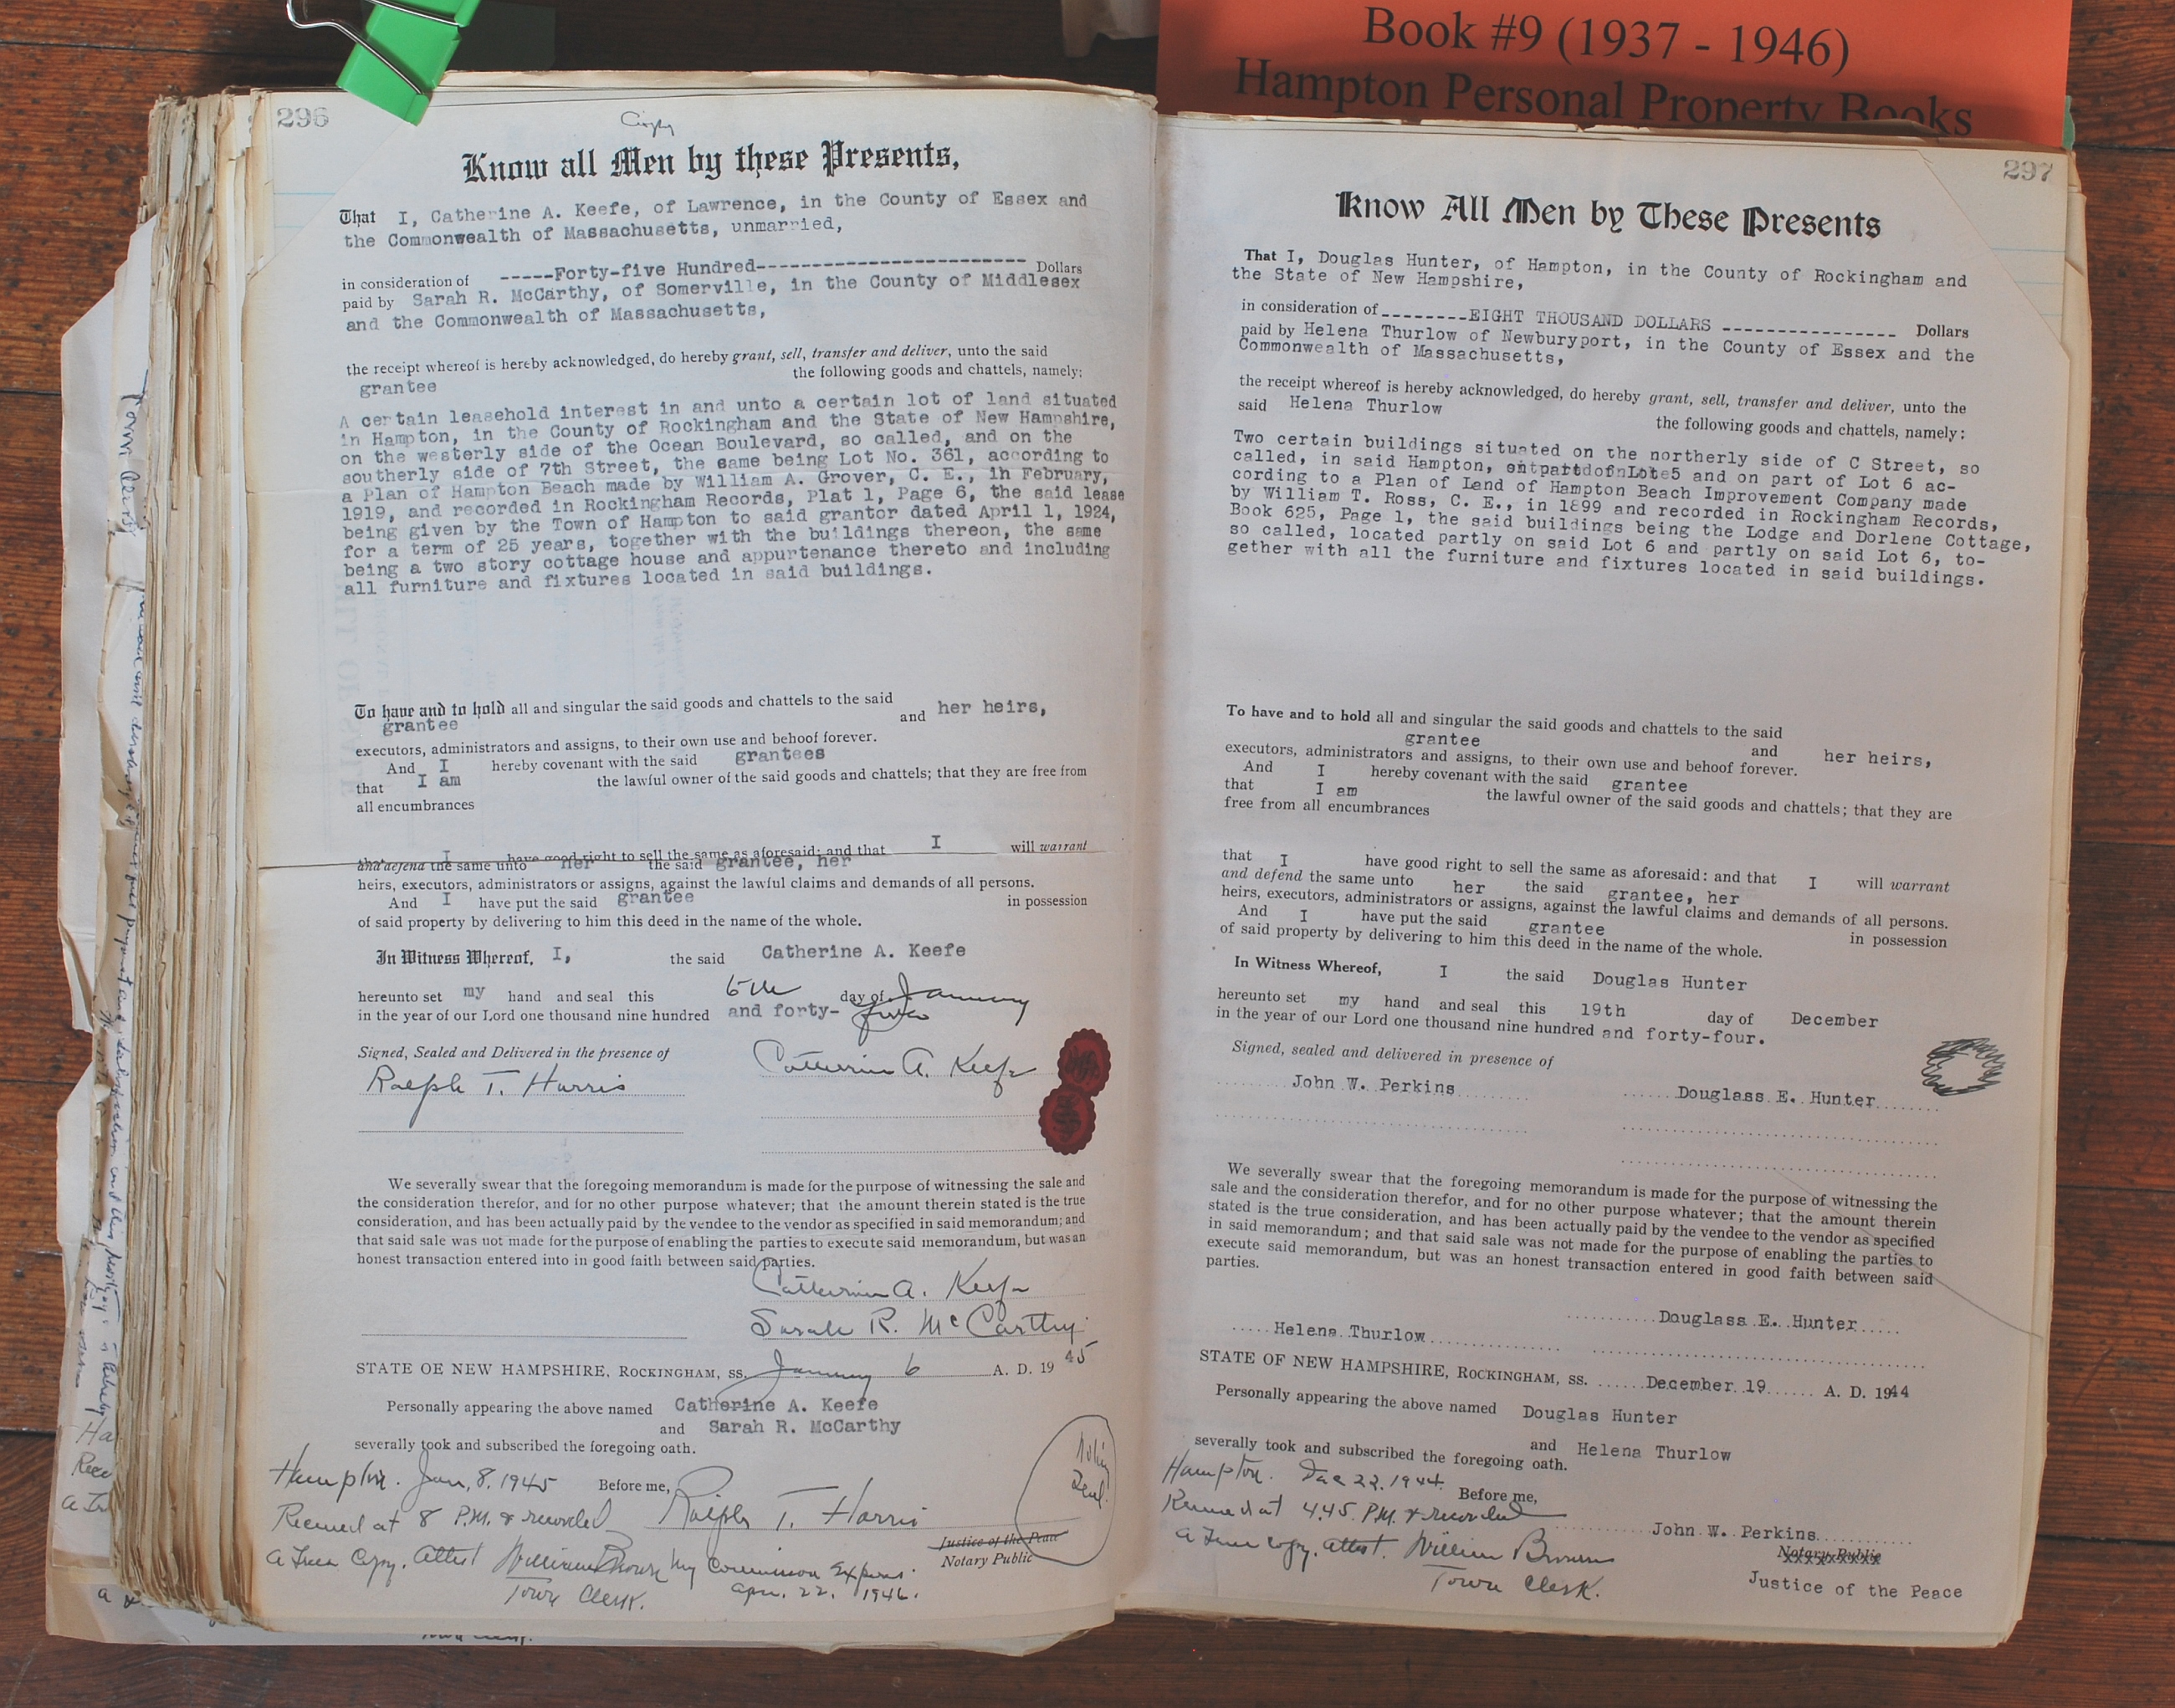 Book #9 (1937 - 1946)
Hampton Personal Property Books
296
Copy
Know all Men by these Presents,
That I, Catherine A. Keefe, of Lawrence, in the County of Essex and
the Commonwealth of Massachusetts, unmarried,
in consideration of -----Forty-five Hundred------------------------ Dollars
paid by Sarah R. McCarthy, of Somerville, in the County of Middlesex
and the Commonwealth of Massachusetts,
the receipt whereof is hereby acknowledged, do hereby grant, sell, transfer and deliver, unto the said
grantee the following goods and chattels, namely:
A certain leasehold interest in and unto a certain lot of land situated
in Hampton, in the County of Rockingham and the State of New Hampshire,
on the westerly side of the Ocean Boulevard, so called, and on the
southerly side of 7th Street, the same being Lot No. 361, according to
a Plan of Hampton Beach made by William A. Grover, C. E., in February,
1919, and recorded in Rockingham Records, Plat 1, Page 6, the said lease
being given by the Town of Hampton to said grantor dated April 1, 1924,
for a term of 25 years, together with the buildings thereon, the same
being a two story cottage house and appurtenance thereto and including
all furniture and fixtures located in said buildings.
To have and to hold all and singular the said goods and chattels to the said
grantee and her heirs,
executors, administrators and assigns, to their own use and behoof forever.
And I hereby covenant with the said grantees
that I am the lawful owner of the said goods and chattels; that they are free from
all encumbrances
that I have good right to sell the same as aforesaid; and that I will warrant
and defend the same unto her the said grantee, her
heirs, executors, administrators or assigns, against the lawful claims and demands of all persons.
And I have put the said grantee in possession
of said property by delivering to him this deed in the name of the whole.
In Witness Whereof, I, the said Catherine A. Keefe
hereunto set my hand and seal this 6th day of January
in the year of our Lord one thousand nine hundred and forty-five
Signed, Sealed and Delivered in the presence of
Catherine A. Keefe
Ralph T. Harris
We severally swear that the foregoing memorandum is made for the purpose of witnessing the sale and
the consideration therefor, and for no other purpose whatever; that the amount therein stated is the true
consideration, and has been actually paid by the vendee to the vendor as specified in said memorandum; and
that said sale was not made for the purpose of enabling the parties to execute said memorandum, but was an
honest transaction entered into in good faith between said parties.
Catherine A. Keefe
Sarah R. McCarthy
STATE OF NEW HAMPSHIRE, ROCKINGHAM, SS. January 6 A. D. 19 45
Personally appearing the above named Catherine A. Keefe
and Sarah R. McCarthy
severally took and subscribed the foregoing oath.
Hampton. Jan, 8, 1945 Before me,
Received at 8 P.M. & recorded Ralph T. Harris
Justice of the Peace
Notary Public
A True Copy. Attest William Brown My Commission Expires
Town Clerk. Apr. 22, 1946.
Seal
297
Know All Men by These Presents
That I, Douglas Hunter, of Hampton, in the County of Rockingham and
the State of New Hampshire,
in consideration of --------EIGHT THOUSAND DOLLARS ---------------- Dollars
paid by Helena Thurlow of Newburyport, in the County of Essex and the
Commonwealth of Massachusetts,
the receipt whereof is hereby acknowledged, do hereby grant, sell, transfer and deliver, unto the
said Helena Thurlow the following goods and chattels, namely:
Two certain buildings situated on the northerly side of C Street, so
called, in said Hampton, Lot 5 and on part of Lot 6 ac-
cording to a Plan of Land of Hampton Beach Improvement Company made
by William T. Ross, C. E., in 1899 and recorded in Rockingham Records,
Book 625, Page 1, the said buildings being the Lodge and Dorlene Cottage,
so called, located partly on said Lot 6 and partly on said Lot 6, to-
gether with all the furniture and fixtures located in said buildings.
To have and to hold all and singular the said goods and chattels to the said
grantee and her heirs,
executors, administrators and assigns, to their own use and behoof forever.
And I hereby covenant with the said grantee
that I am the lawful owner of the said goods and chattels; that they are
free from all encumbrances
that I have good right to sell the same as aforesaid: and that I will warrant
and defend the same unto her the said grantee, her
heirs, executors, administrators or assigns, against the lawful claims and demands of all persons.
And I have put the said grantee in possession
of said property by delivering to him this deed in the name of the whole.
In Witness Whereof, I the said Douglas Hunter
hereunto set my hand and seal this 19th day of December
in the year of our Lord one thousand nine hundred and forty-four.
Signed, sealed and delivered in presence of
John W. Perkins Douglass E. Hunter
We severally swear that the foregoing memorandum is made for the purpose of witnessing the
sale and the consideration therefor, and for no other purpose whatever; that the amount therein
stated is the true consideration, and has been actually paid by the vendee to the vendor as specified
in said memorandum; and that said sale was not made for the purpose of enabling the parties to
execute said memorandum, but was an honest transaction entered in good faith between said
parties.
Douglass E. Hunter
Helena Thurlow
STATE OF NEW HAMPSHIRE, ROCKINGHAM, SS. December 19 A. D. 1944
Personally appearing the above named Douglas Hunter
and Helena Thurlow
severally took and subscribed the foregoing oath.
Hampton. Dec 22, 1944. Before me,
Received at 4.45 P.M. & recorded
John W. Perkins
A True Copy. Attest. William Brown
Notary Public
Town Clerk.
Justice of the Peace